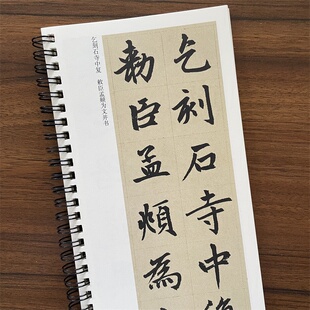 乞刻石寺中
勅臣孟頫為
乞刻石寺中复 敕臣孟頫为文并书